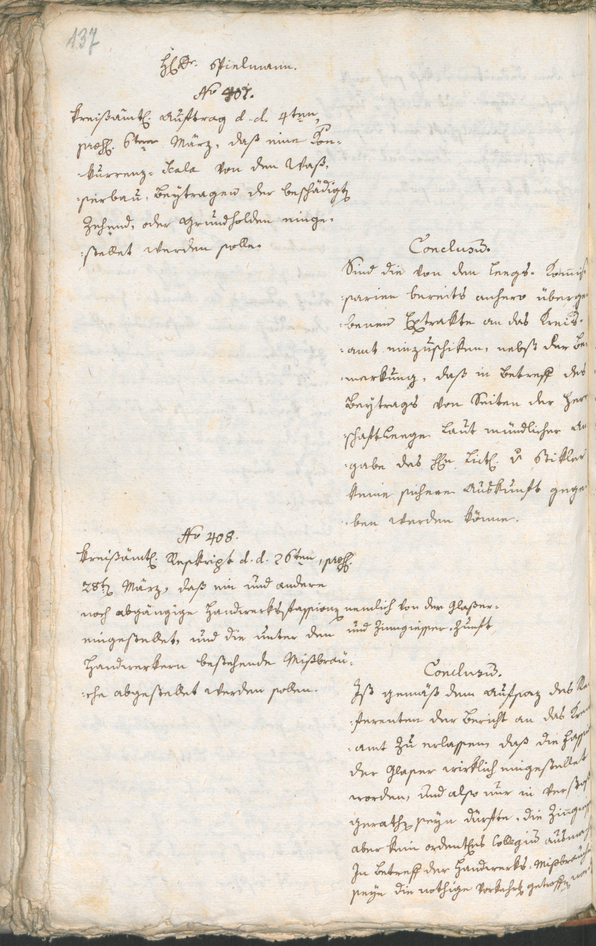 137
H. Dr. Spielmann.
No 407.
Kreißämtl. Auftrag d. d. 4ten,
præs. 6ten März, daß eine Kon-
kurrenz-Scala von den Waß-
serbau-Beyträgen der beschädigten
Zehend- oder Grundholden einge-
stellet werden solle.
Conclusum.
Sind die von den Leegs-Kommis-
sarien bereits anhero überge-
benen Extrakte an das Kreis-
amt einzuschiken, nebst der Be-
merkung, daß in Betreff des
Beytrags von Seiten der Herr-
schaftleege laut mündlicher An-
gabe des Hn. v. Stikler
keine sichere Auskunft gege-
ben werden könne.
No 408.
Kreißämtl. Reskript d. d. 26ten, præs.
28ten März, daß ein und andere
noch abgängige Handwerksfassionen
nemlich von der Glaßer-
und Zinngießer-Zunft
eingestellet, und die unter den
Handwerkern bestehende Mißbräu-
che abgestellet werden sollen.
Conclusum.
Ist gemäß dem Aufsaz des Re-
ferenten der Bericht an das Kreis-
amt zu erlassen, daß die Fassion
der Glaser wirklich eingestellet
worden, und also nur in Verstoß
gerathen seyn dürfte, die Zinngießer
aber kein ordentliches Collegium ausmachen
In Betreff der Handwerks-Mißbräuche
seye die nöthige Vorkehr getroffen